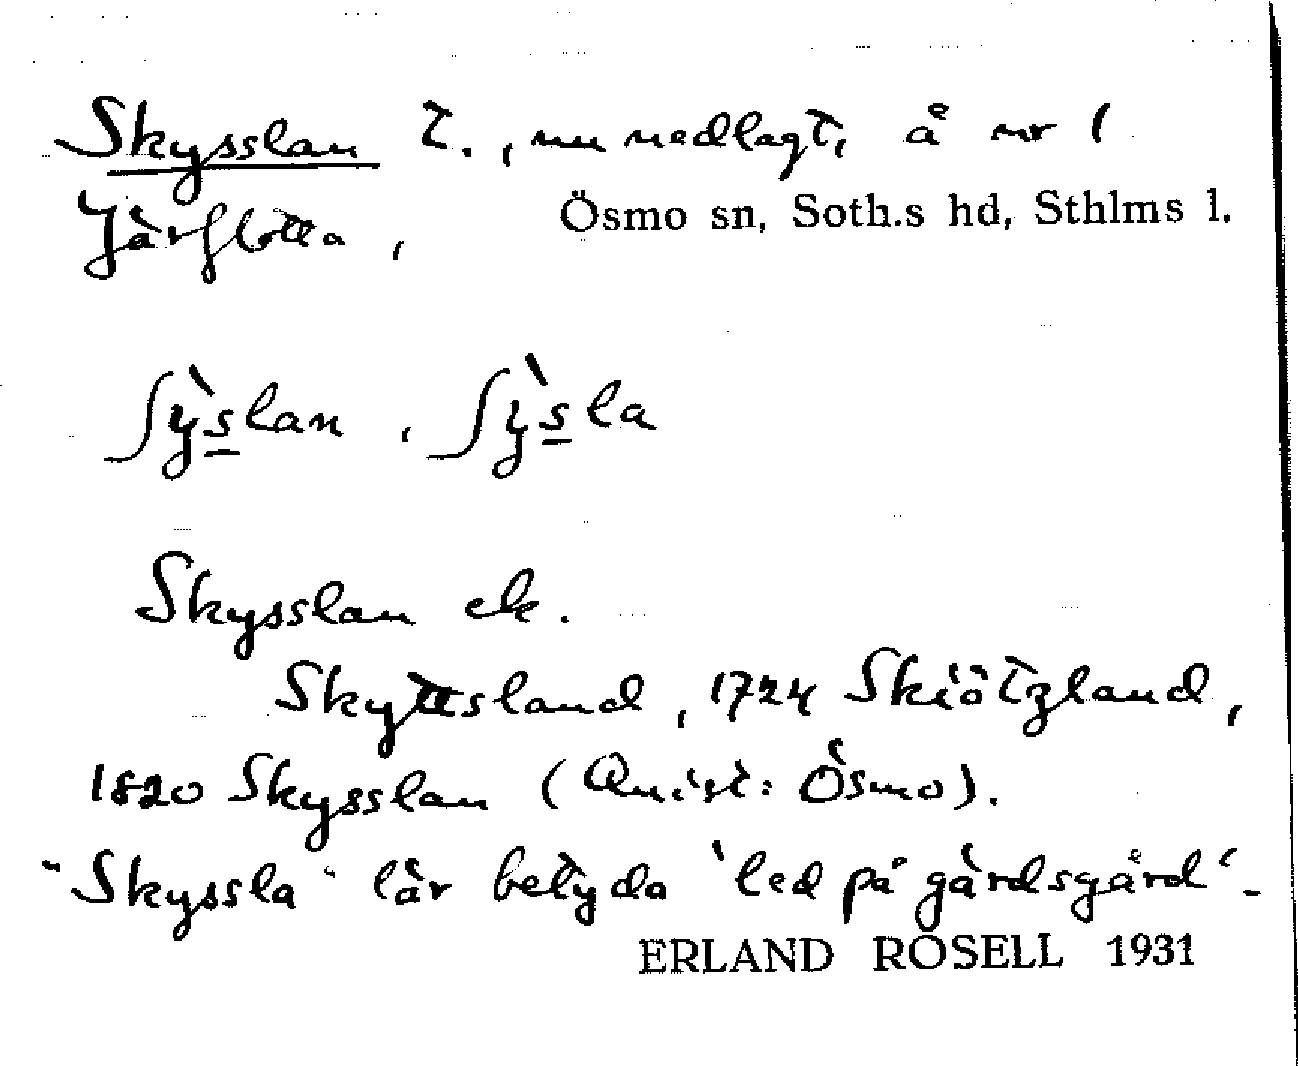 Skysslan t., nu nedlagt, å nr 1
Järflotta, Ösmo sn, Soth.s hd, Sthlms l.
ʃỳslan, ʃỳsla
Skysslan ek.
Skyttsland, 1724 Skiötzland,
1820 Skysslan (Quist: Ösmo).
"Skyssla" lär betyda 'led på gärdsgård'.
ERLAND ROSELL 1931